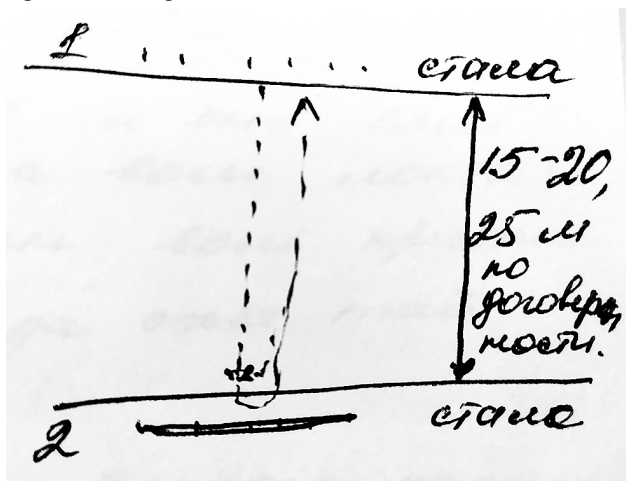 1
стала
15-20,
25 м
по
договорен
ности.
2
стало